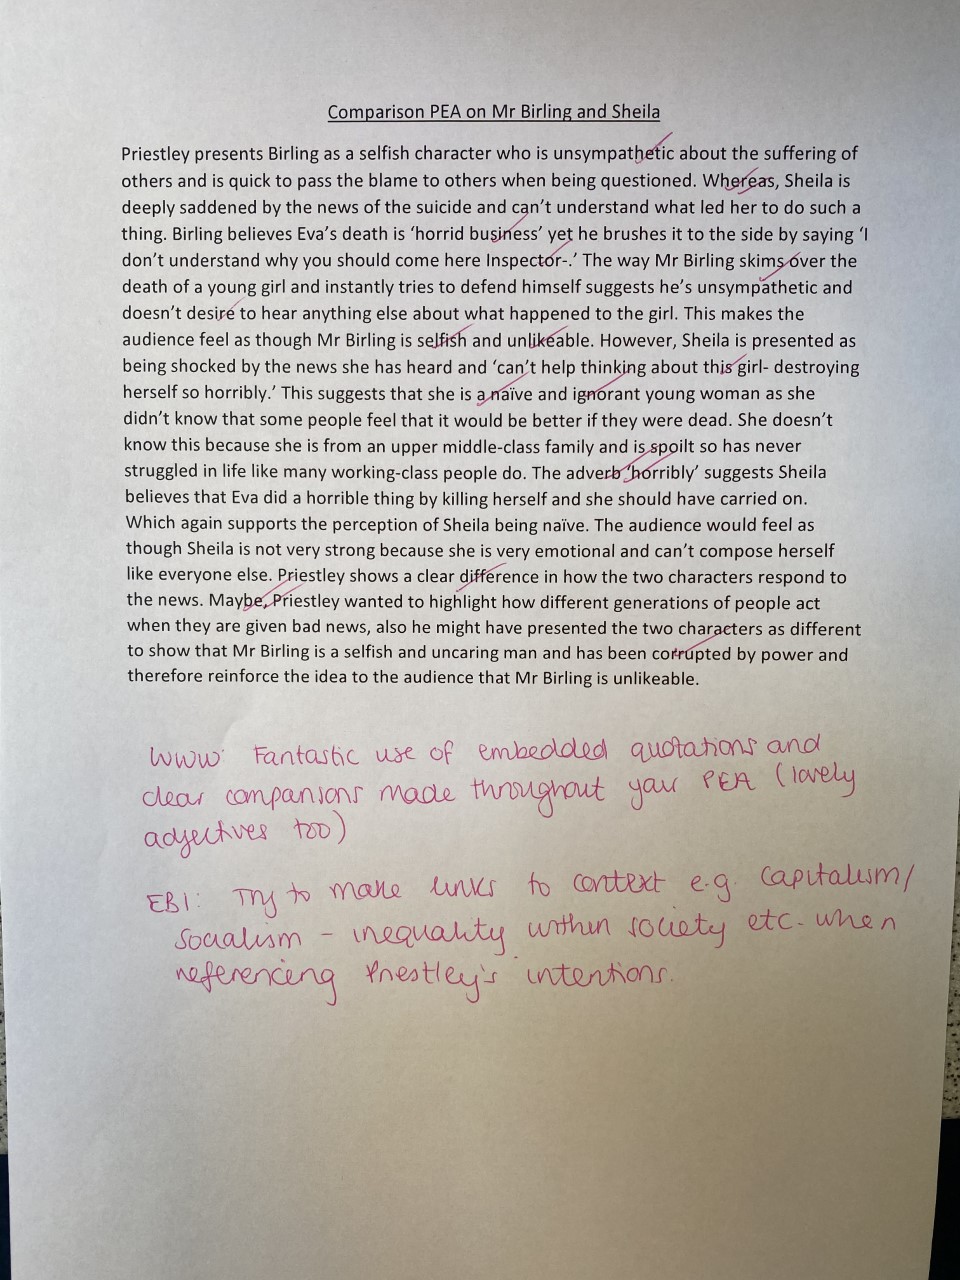 Comparison PEA on Mr Birling and Sheila
Priestley presents Birling as a selfish character who is unsympathetic about the suffering of
others and is quick to pass the blame to others when being questioned. Whereas, Sheila is
deeply saddened by the news of the suicide and can't understand what led her to do such a
thing. Birling believes Eva's death is 'horrid business' yet he brushes it to the side by saying 'I
don't understand why you should come here Inspector-.' The way Mr Birling skims over the
death of a young girl and instantly tries to defend himself suggests he's unsympathetic and
doesn't desire to hear anything else about what happened to the girl. This makes the
audience feel as though Mr Birling is selfish and unlikeable. However, Sheila is presented as
being shocked by the news she has heard and 'can't help thinking about this girl- destroying
herself so horribly.' This suggests that she is a naïve and ignorant young woman as she
didn't know that some people feel that it would be better if they were dead. She doesn't
know this because she is from an upper middle-class family and is spoilt so has never
struggled in life like many working-class people do. The adverb 'horribly' suggests Sheila
believes that Eva did a horrible thing by killing herself and she should have carried on.
Which again supports the perception of Sheila being naïve. The audience would feel as
though Sheila is not very strong because she is very emotional and can't compose herself
like everyone else. Priestley shows a clear difference in how the two characters respond to
the news. Maybe, Priestley wanted to highlight how different generations of people act
when they are given bad news, also he might have presented the two characters as different
to show that Mr Birling is a selfish and uncaring man and has been corrupted by power and
therefore reinforce the idea to the audience that Mr Birling is unlikeable.
WWW: Fantastic use of embedded quotations and
clear comparisons made throughout your PEA (lovely
adjectives too)
EBI: Try to make links to context e.g. capitalism/
socialism - inequality within society etc. when
referencing Priestley's intentions.